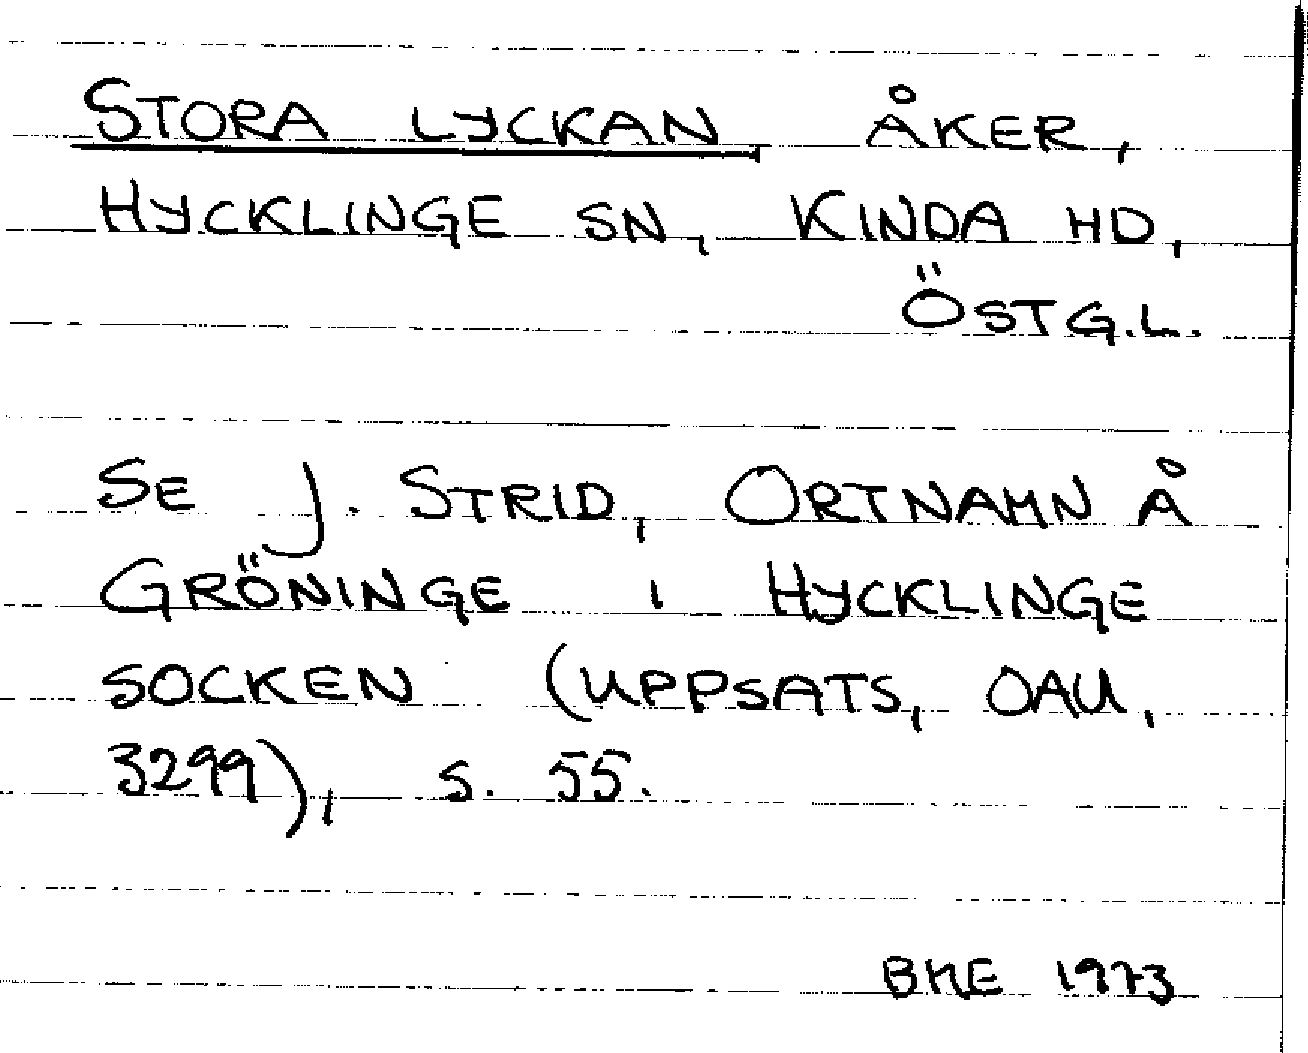 STORA LYCKAN ÅKER,
HYCKLINGE SN, KINDA HD,
ÖSTG.L.
SE J. STRID, ORTNAMN Å
GRÖNINGE I HYCKLINGE
SOCKEN (UPPSATS, OAU,
3299), S. 55.
BKE 1973